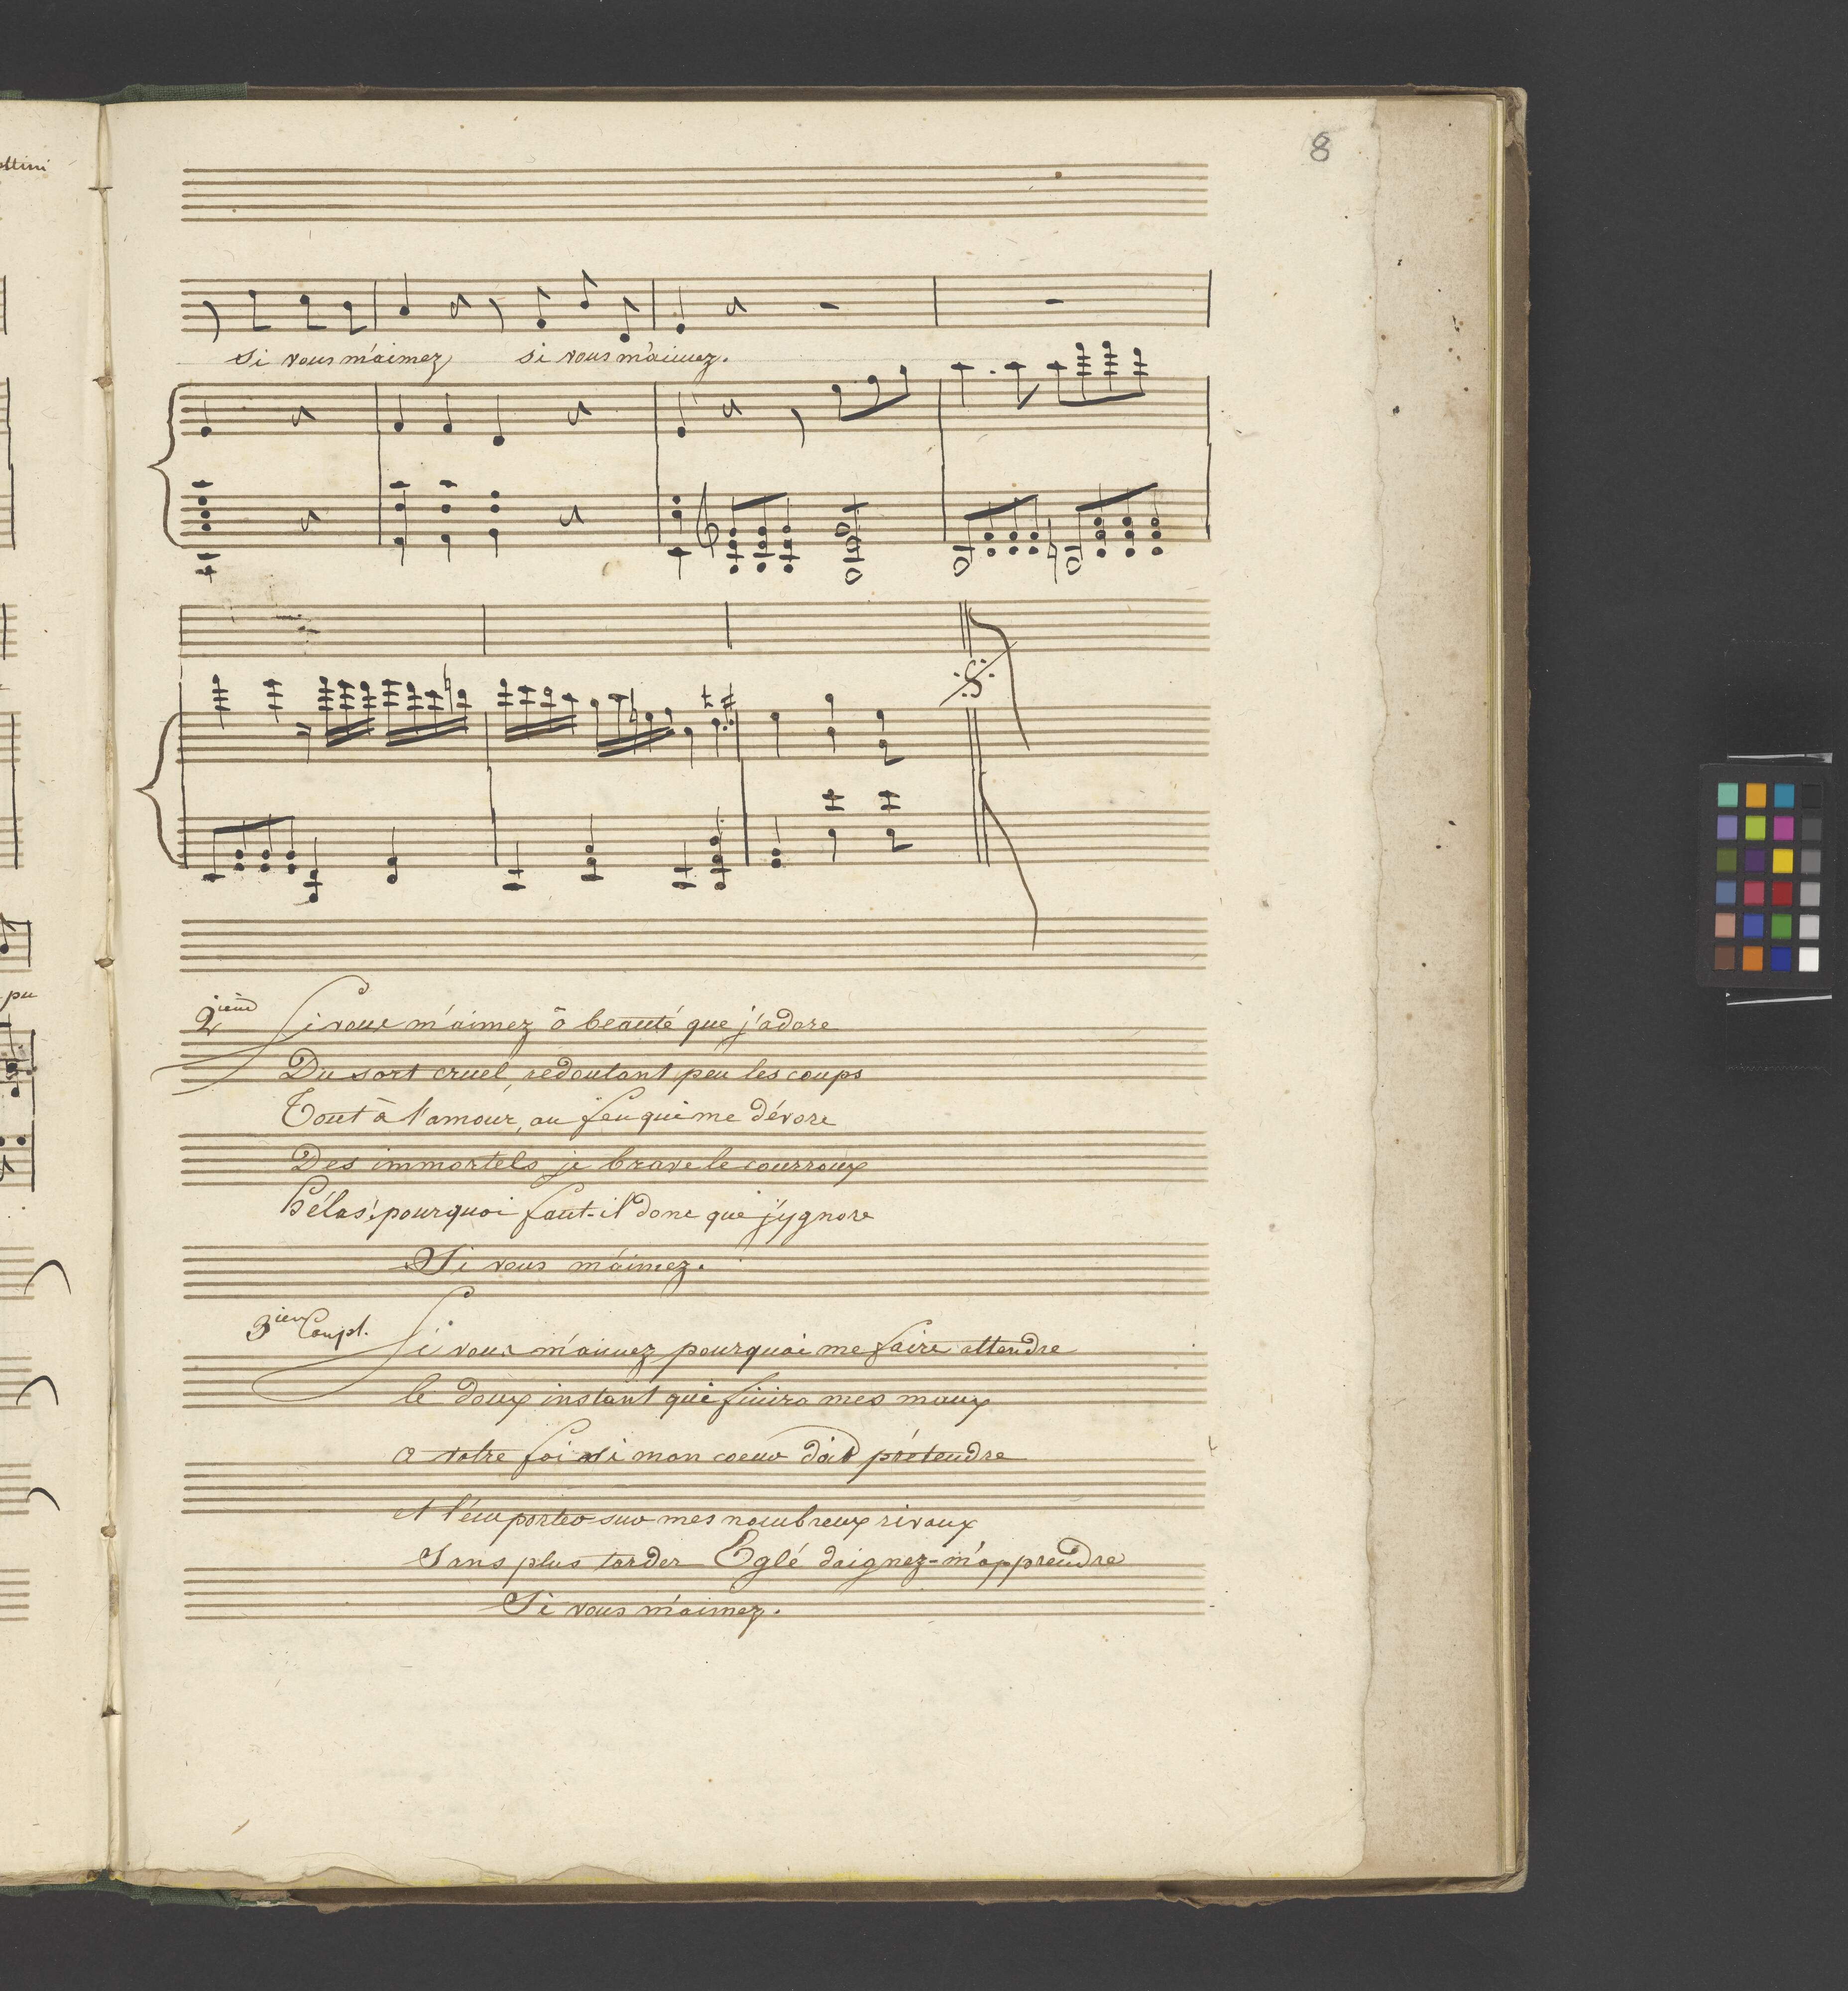 8
Si vous m'aimez si vous m'aimez.
2ième Si vous m'aimez ô beauté que j'adore
Du sort cruel, redoutant peu les coups
Tout à l'amour, au feu qui me dévore
Des immortels je brave le courroux
Hélas! pourquoi faut-il donc que j'ygnore
Si vous m'aimez.
3ien Coupl. Si vous m'aimez pourquoi me faire attendre
le doux instant qui finira mes maux
a votre foi si mon coeur doit prétendre
et l'emporter sur mes nombreux rivaux
Sans plus tarder Eglé daignez-m'apprendre
Si vous m'aimez.